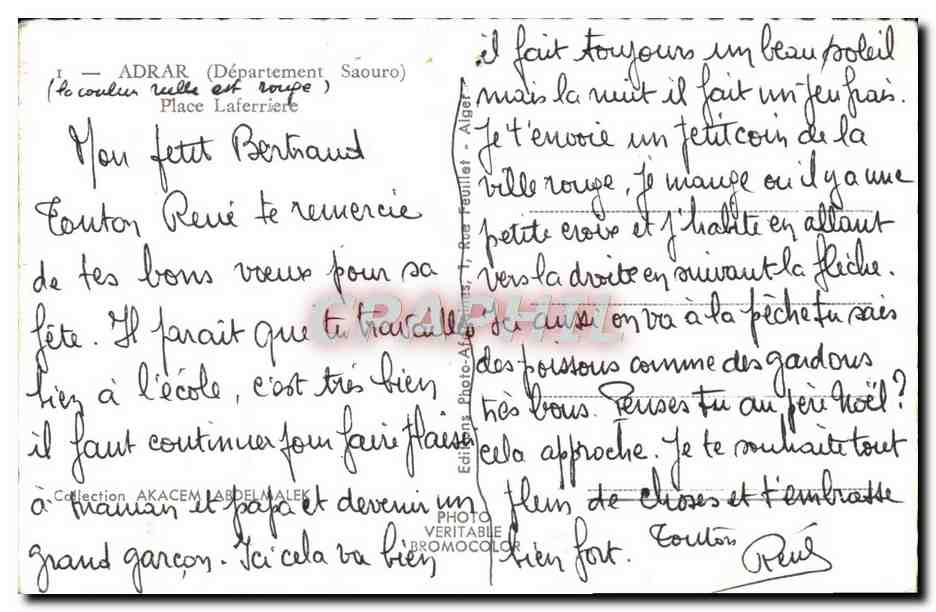 1 — ADRAR (Département Saouro)
(la couleur réelle est rouge)
Place Laferrière
Mon petit Bertrand
Tonton René te remercie
de tes bons vœux pour sa
fête. Il parait que tu travailles
bien à l'école, c'est très bien
il faut continuer pour faire plaisir
à maman et papa et devenir un
grand garçon. Ici cela va bien
Collection AKACEM ABDELMALEK
PHOTO
VERITABLE
BROMOCOLOR
Editions Photo-Africaines, 1, Rue Feuillet - Alger
CARTPHIL
il fait toujours un beau soleil
mais la nuit il fait un peu frais.
Je t'envoie un petit coin de la
ville rouge, je mange où il y a une
petite croix et j'habite en allant
vers la droite en suivant la flèche.
Ici aussi on va à la pêche tu sais
des poissons comme des gardons
très bons. Penses tu au père Noël?
cela approche. Je te souhaite tout
plein de choses et t'embrasse
bien fort. Tonton
René